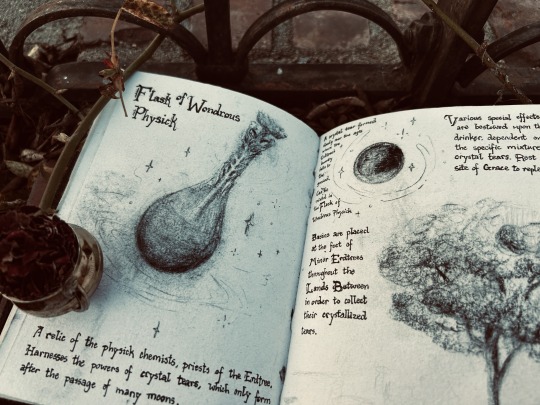 Flask of Wondrous
Physick
A relic of the physick chemists, priests of the Erdtree,
Harnesses the powers of crystal tears, which only form
after the passage of many moons.
A crystal tear formed
Flask of
Wondrous Physick
Basins are placed
at the foot of
Minor Erdtrees
throughout the
Lands Between
in order to collect
their crystallized
tears.
Various special effects
are bestowed upon th
drinker, dependent on
the specific mixture
crystal tears. Rest
site of Grace to reple